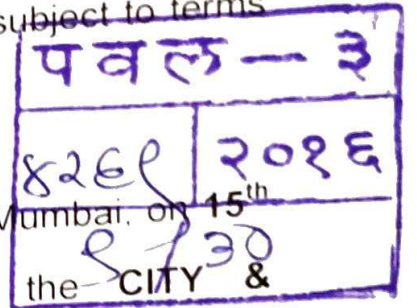 subject to terms
पवल — ३
४२६९ २०१६
Mumbai. on 15th
९ / ३०
the CITY &